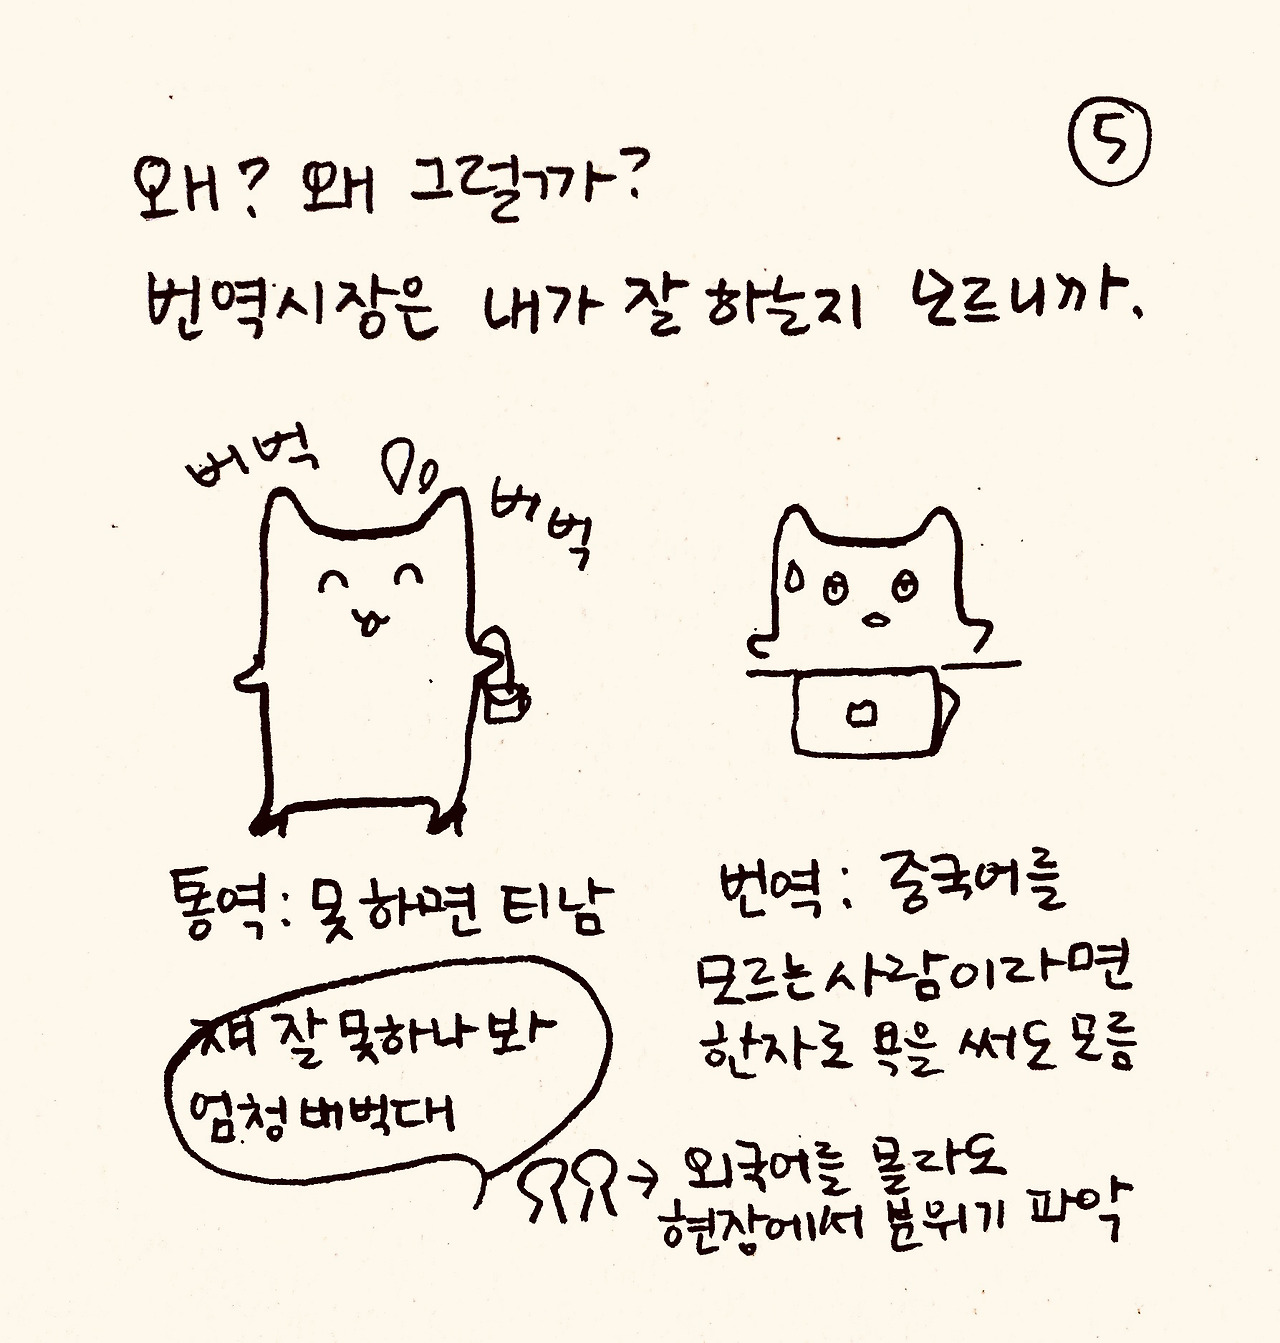 ⑤
왜? 왜 그럴까?
번역시장은 내가 잘 하는지 모르니까.
버벅
버벅
통역: 못 하면 티남
쟤 잘 못하나 봐
엄청 버벅대
번역: 중국어를
모르는 사람이라면
한자로 욕을 써도 모름
→ 외국어를 몰라도
현장에서 분위기 파악